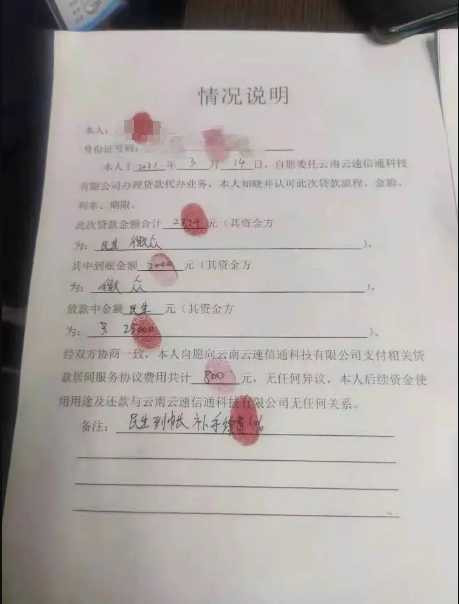 情况说明
本人：
身份证号码：
本人于 2021 年 3 月 14 日，自愿委托云南云速信通科技
有限公司办理贷款代办业务，本人知晓并认可此次贷款流程、金额、
利率、期限。
此次贷款金额合计 元（其资金方
为： 民生 微众 ）。
其中到账金额 2000 元（其资金方
为： 微 众 ）。
放款中金额 民生 元（其资金方
为： 25000 ）。
经双方协商一致，本人自愿向云南云速信通科技有限公司支付相关贷
款居间服务协议费用共计 800 元，无任何异议，本人后续资金使
用用途及还款与云南云速信通科技有限公司无任何关系。
备注： 民生到帐 补手续费